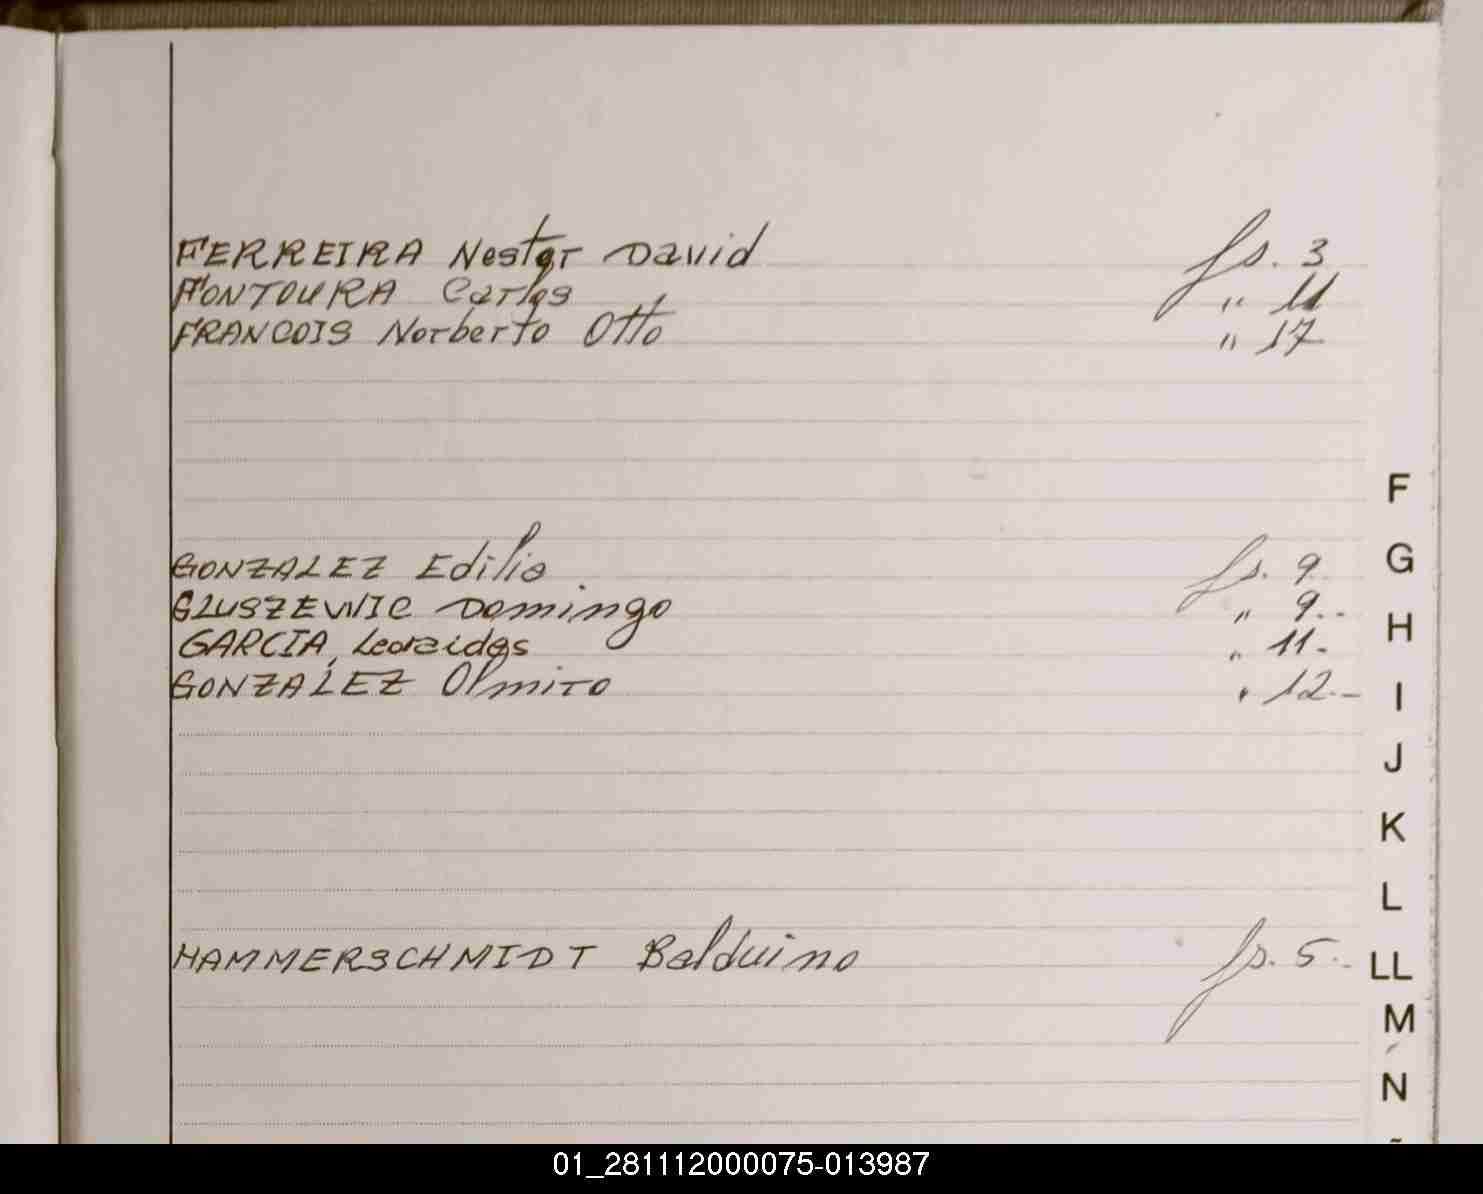 FERREIRA Nestor David fs. 3
FONTOURA Carlos " 11
FRANCOIS Norberto Otto " 17
F
GONZALEZ Edilio fs. 9
G
GLUSZEWIC Domingo " 9.-
H
GARCIA, Leonidas " 11.
GONZALEZ Olmiro " 12.-
I
J
K
L
HAMMERSCHMIDT Balduino fs. 5.-
LL
M
N
01_281112000075-013987